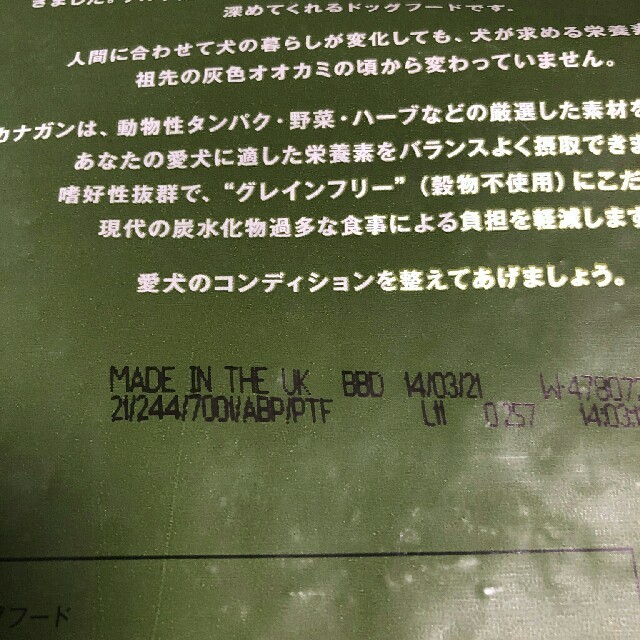 深めてくれるドッグフードです。
人間に合わせて犬の暮らしが変化しても、犬が求める栄養素
祖先の灰色オオカミの頃から変わっていません。
カナガンは、動物性タンパク・野菜・ハーブなどの厳選した素材を
あなたの愛犬に適した栄養素をバランスよく摂取でき
嗜好性抜群で、“グレインフリー”（穀物不使用）にこだ
現代の炭水化物過多な食事による負担を軽減します
愛犬のコンディションを整えてあげましょう。
MADE IN THE UK BBD 14/03/21 W-47807
21/244/7001/ABP/PTF L11 0257 14:03
フード